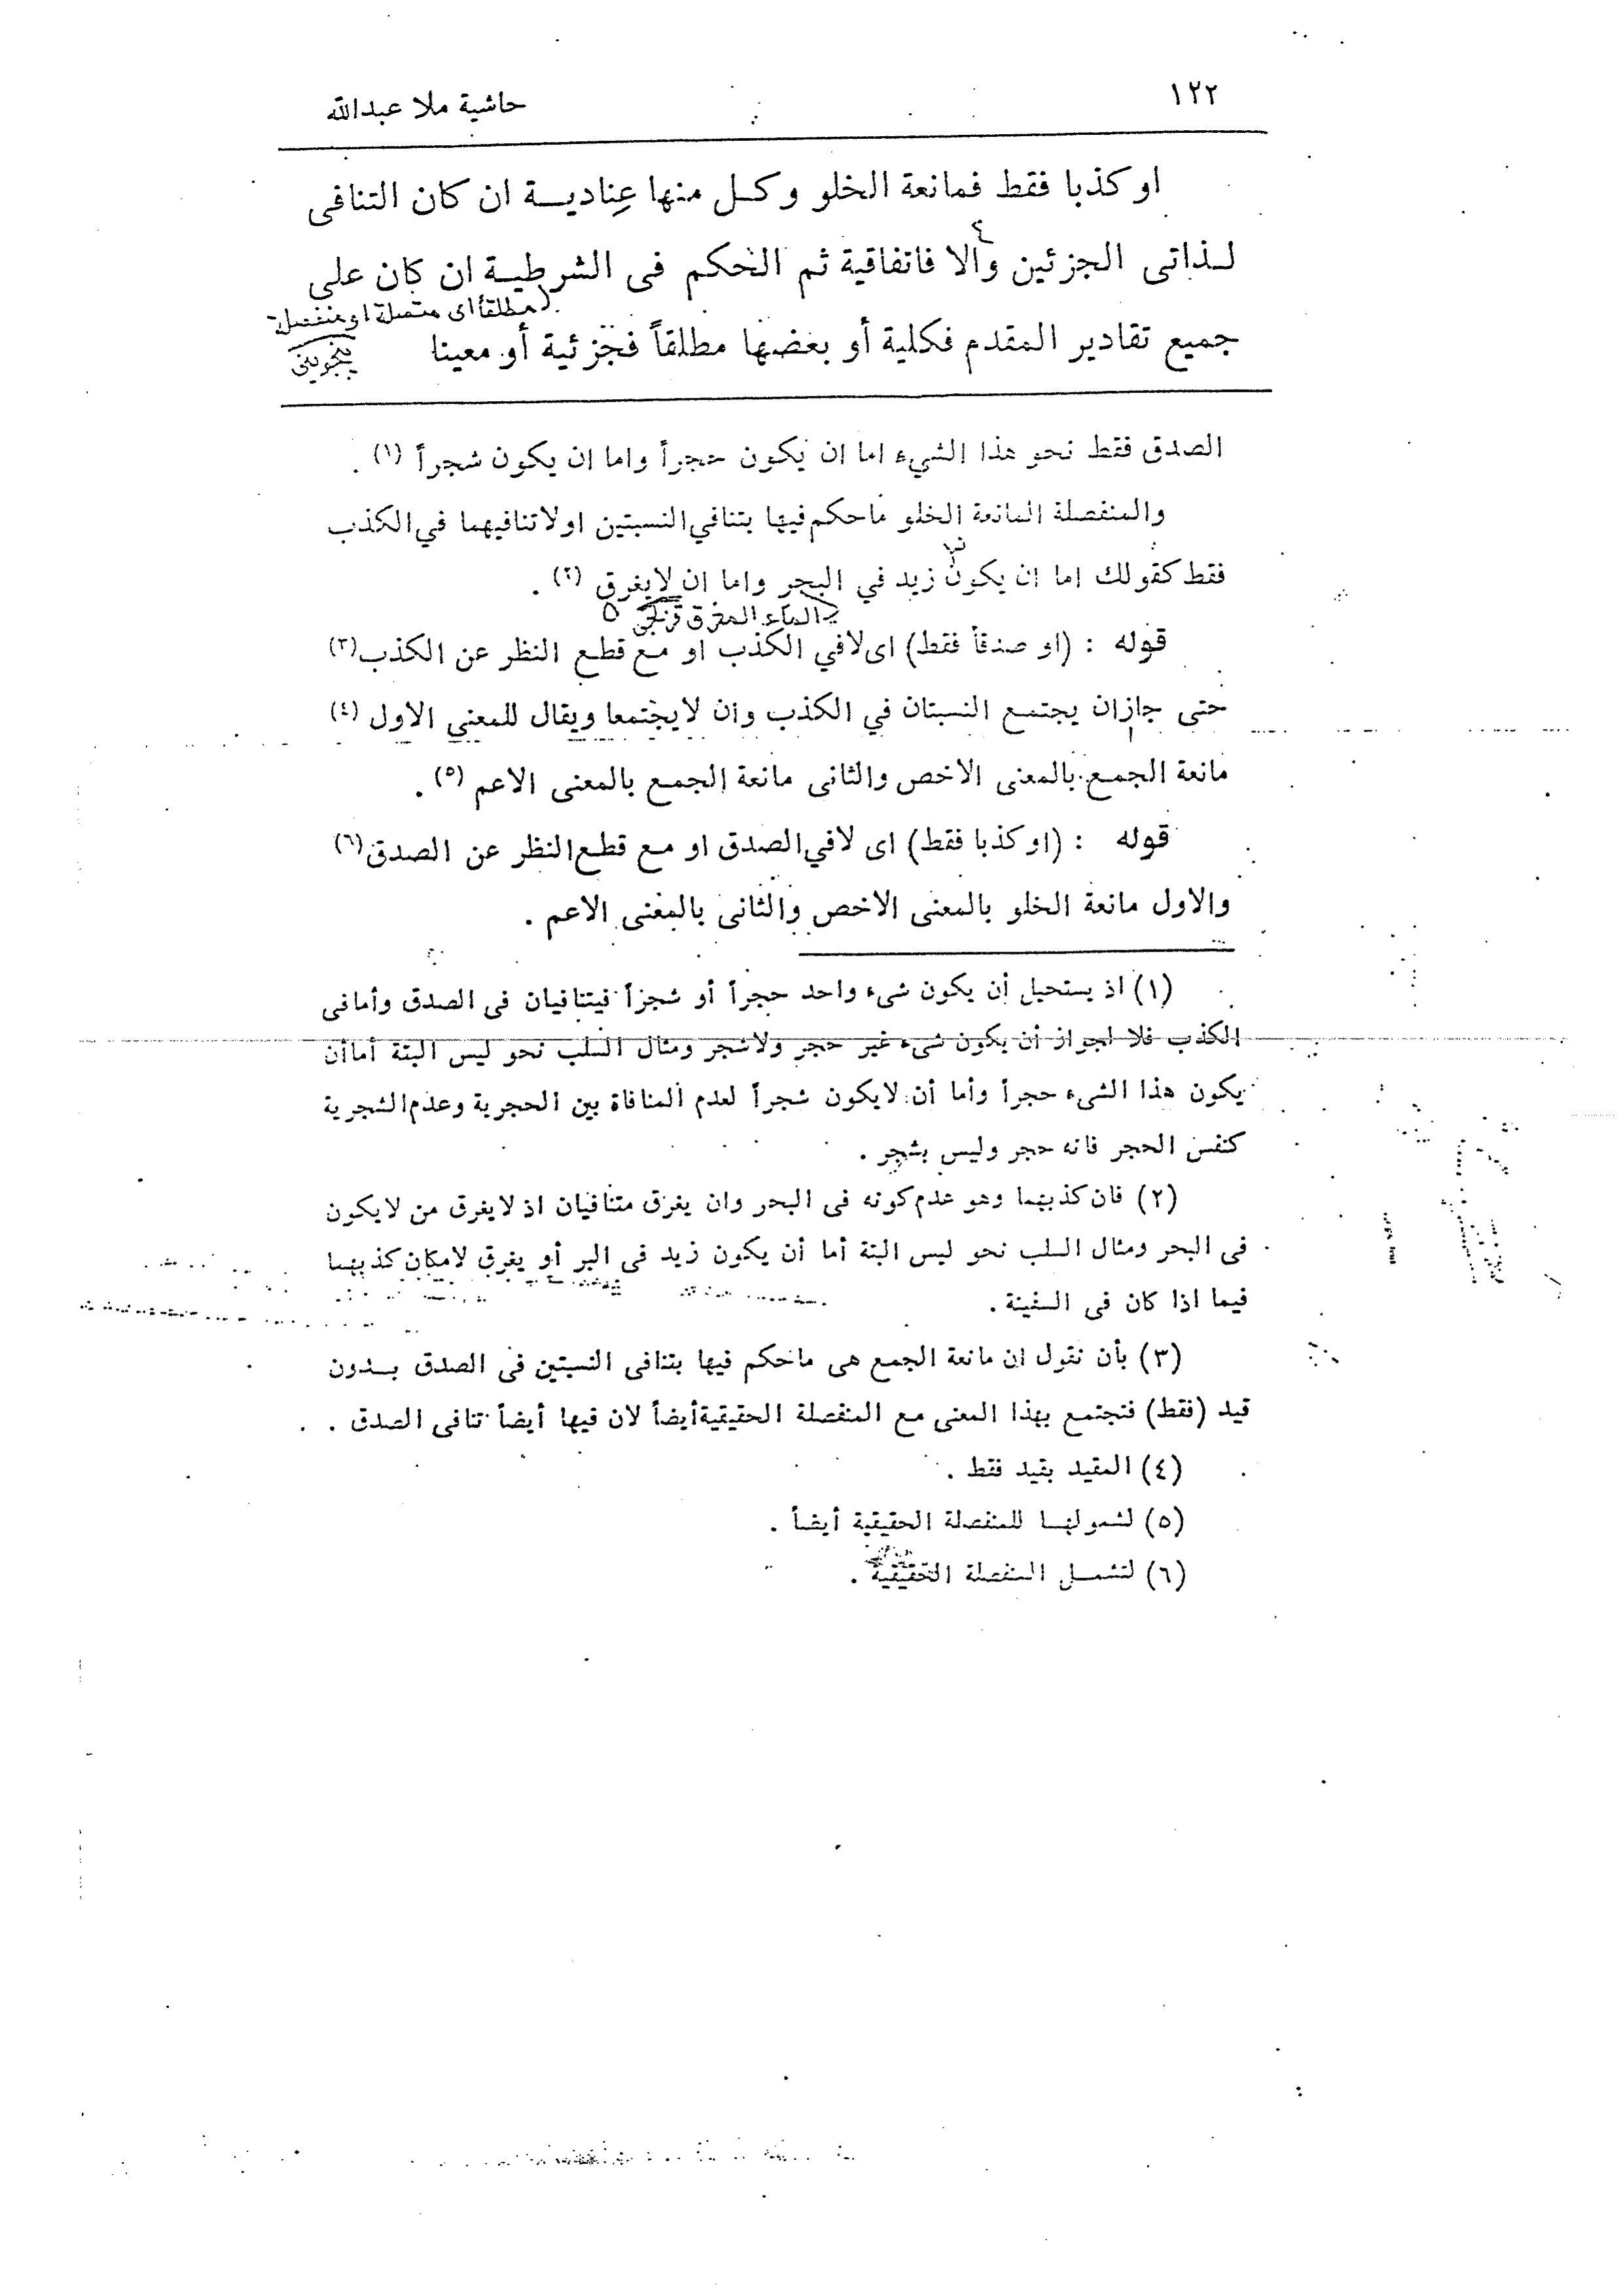 ١٢٢ حاشية ملا عبدالله
او كذبا فقط فمانعة الخلو وكـل منها عِناديـــة ان كان التنافى
لـذاتى الجزئين والا فاتفاقية ثم الحكم فى الشرطيـة ان كان على
مطلقاً اى متصلة او منفصلة
جميع تقادير المقدم فكلية أو بعضها مطلقاً فجزئية أو معينا
الصدق فقط نحو هذا الشيء اما ان يكون حجراً واما ان يكون شجراً (١) .
والمنفصلة المانعة الخلو ماحكم فيها بتنافي النسبتين اولاتنافيهما في الكذب
فقط كقولك اما ان يكون زيد في البحر واما ان لايغرق (٢) .
الماء المغرق
قوله : (او صدقاً فقط) اى لافي الكذب او مـع قطـع النظر عن الكذب (٣)
حتى جازان يجتمـع النسبتان في الكذب وان لايجتمعا ويقال للمعنى الاول (٤)
مانعة الجمـع بالمعنى الاخص والثانى مانعة الجمـع بالمعنى الاعم (٥) .
قوله : (او كذبا فقط) اى لافي الصدق او مـع قطـع النظر عن الصدق (٦)
والاول مانعة الخلو بالمعنى الاخص والثانى بالمعنى الاعم .
(١) اذ يستحيل أن يكون شىء واحد حجراً أو شجراً فيتنافيان فى الصدق وأمافى
الكذب فلا لجواز أن يكون شىء غير حجر ولاشجر ومثال السلب نحو ليس البتة أماأن
يكون هذا الشىء حجراً وأما أن لايكون شجراً لعدم المنافاة بين الحجرية وعدم الشجرية
كنفس الحجر فانه حجر وليس بشجر .
(٢) فان كذبهما وهو عدم كونه فى البحر وان يغرق متنافيان اذ لايغرق من لايكون
فى البحر ومثال السلب نحو ليس البتة أما أن يكون زيد فى البر أو يغرق لامكان كذبهما
فيما اذا كان فى السفينة .
(٣) بأن نقول ان مانعة الجمع هى ماحكم فيها بتنافى النسبتين فى الصدق بــدون
قيد (فقط) فتجتمع بهذا المعنى مع المنفصلة الحقيقية أيضاً لان فيها أيضاً تنافى الصدق .
(٤) المقيد بقيد فقط .
(٥) لشمولهـا للمنفصلة الحقيقية أيضاً .
(٦) لتشمـل المنفصلة الحقيقية .